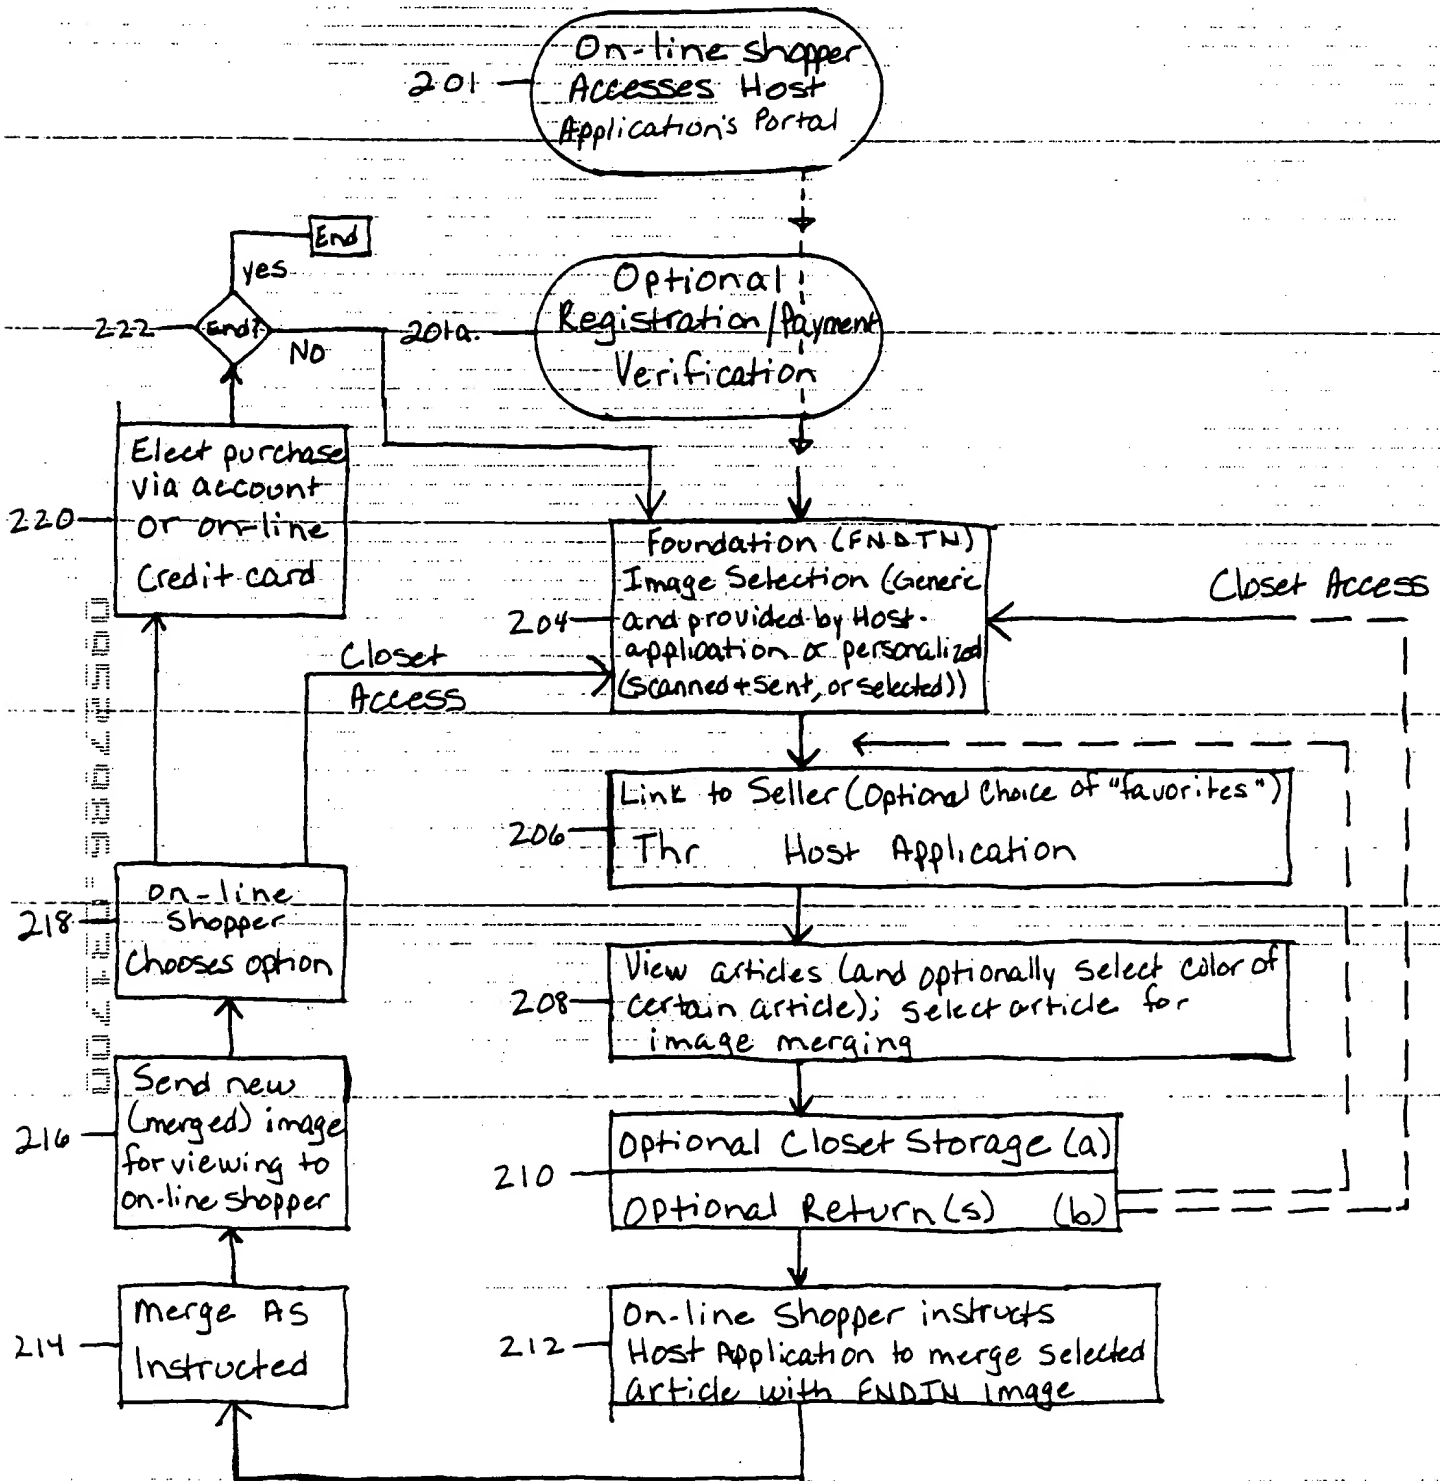 On-line shopper
201
Accesses Host
Application's Portal
End
yes
Optional
222
End?
No
201a.
Registration/Payment
Verification
Elect purchase
via account
220
or on-line
Credit card
Foundation (FNDTN)
Image Selection (Generic
204
and provided by Host
application or personalized
(scanned + sent, or selected))
Closet Access
Closet
Access
Link to Seller (Optional Choice of "favorites")
206
Thr Host Application
on-line
218
Shopper
Chooses option
View articles (and optionally select color of
208
certain article); select article for
image merging
Send new
216
(merged) image
for viewing to
on-line shopper
Optional Closet Storage (a)
210
Optional Return(s) (b)
Merge AS
214
Instructed
On-line Shopper instructs
212
Host Application to merge selected
article with FNDTN Image